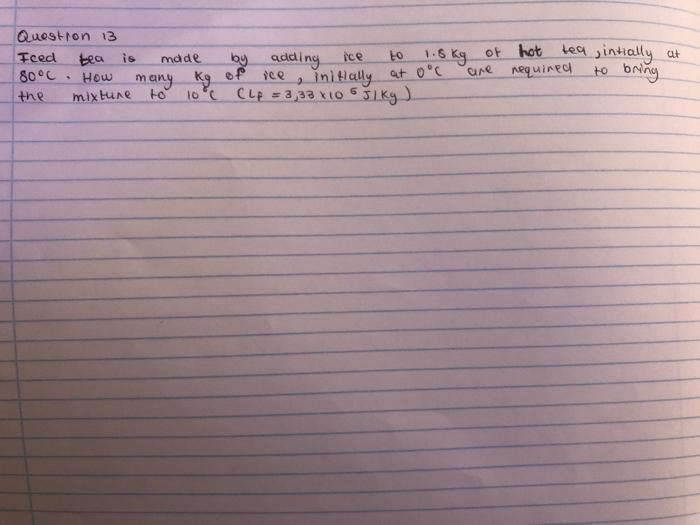 Question 13
Iced tea is made by adding ice to 1.8 kg of hot tea, intially at
80°C. How many kg of ice, initially at 0°C are required to bring
the mixture to 10°C (LF = 3,33 x 10 5 J/kg)